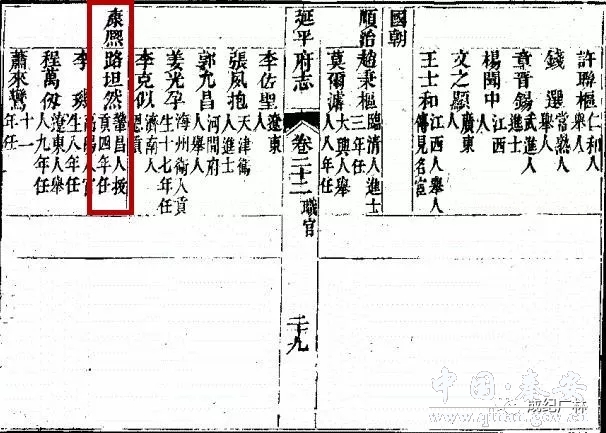 許聯樞 仁和人舉人
錢選 常熟人舉人
章晋錫 武進人進士
楊聞中 江西人
文之顯 廣東人
王士和 江西人舉人傳見名宦
國朝
順治 趙秉樞 臨清人進士三年任
莫爾 大興人舉人八年任
延平府志 卷二十二 職官 二十九
李佐聖 遼東
張夙抱 天津衛人進士
郭允昌 河間府人舉人
姜光孕 海州衛人貢生十七年任
李克似 濟南人恩貢
康熙 路坦然 鞏昌人拔貢四年任
李 高陽人官生八年任
程萬 遼東人舉人九年任
蕭來鸞 十一年任
中国·秦安
成纪广林